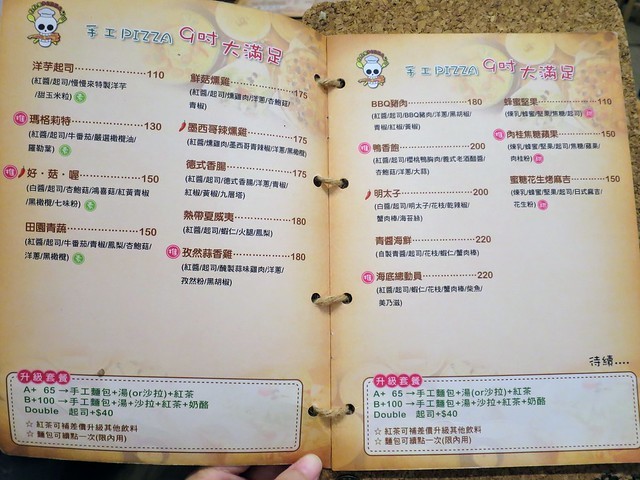 手工PIZZA 9吋大滿足
洋芋起司 110
(紅醬/起司/慢慢來特製洋芋
/甜玉米粒)
推 瑪格莉特 130
(紅醬/起司/牛番茄/嚴選橄欖油/
羅勒葉)
推 好‧菇‧喔 150
(白醬/起司/杏鮑菇/鴻喜菇/紅黃青椒
/黑橄欖/七味粉)
田園青蔬 150
(紅醬/起司/牛番茄/青椒/鳳梨/杏鮑菇/
洋蔥/黑橄欖)
鮮菇燻雞 175
(紅醬/起司/燻雞肉/洋蔥/杏鮑菇/
青椒)
墨西哥辣燻雞 175
(紅醬/燻雞肉/墨西哥青辣椒/洋蔥/黑橄欖)
德式香腸 175
(紅醬/起司/德式香腸/洋蔥/青椒/
紅椒/黃椒/九層塔)
熱帶夏威夷 180
(紅醬/起司/蝦仁/火腿/鳳梨)
推 孜然蒜香雞 180
(紅醬/起司/醃製蒜味雞肉/洋蔥/
孜然粉/黑胡椒)
升級套餐
A+ 65→手工麵包+湯(or沙拉)+紅茶
B+100→手工麵包+湯+沙拉+紅茶+奶酪
Double 起司+$40
☆ 紅茶可補差價升級其他飲料
☆ 麵包可續點一次(限內用)
手工PIZZA 9吋大滿足
BBQ豬肉 180
(紅醬/起司/BBQ豬肉/洋蔥/黑胡椒/
青椒/紅椒/黃椒)
推 鴨香飽 200
(紅醬/起司/櫻桃鴨胸肉/義式老酒醋醬
/杏鮑菇/洋蔥/大蒜)
明太子 200
(白醬/起司/明太子/花枝/乾辣椒/
蟹肉棒/海苔絲)
青醬海鮮 220
(自製青醬/起司/花枝/蝦仁/蟹肉棒)
推 海底總動員 220
(紅醬/起司/蝦仁/花枝/蟹肉棒/柴魚/
美乃滋)
蜂蜜堅果 110
(煉乳/蜂蜜/堅果/焦糖/起司) 甜
推 肉桂焦糖蘋果 150
(煉乳/蜂蜜/堅果/起司/焦糖/蘋果/
肉桂粉) 甜
蜜糖花生燒麻吉 150
(煉乳/蜂蜜/堅果/起司/日式麻吉/
花生粉) 甜
待續....
升級套餐
A+ 65→手工麵包+湯(or沙拉)+紅茶
B+100→手工麵包+湯+沙拉+紅茶+奶酪
Double 起司+$40
☆ 紅茶可補差價升級其他飲料
☆ 麵包可續點一次(限內用)